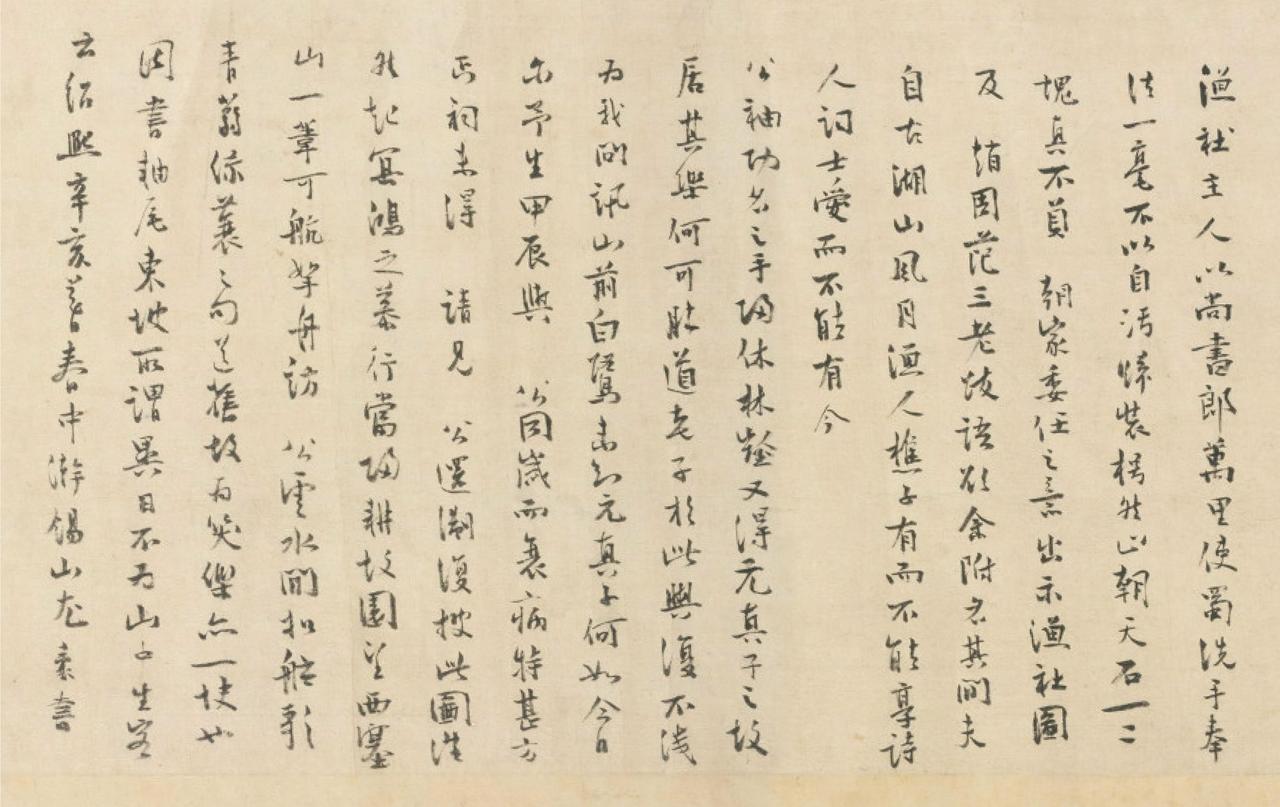 漁社主人以尚書郎萬里使蜀洗手奉
法一毫不以自污歸裝枵然止朝天石一二
塊真不負 朝家委任之意出示漁社圖
及 周范三老妙語欲余附名其間夫
自古湖山風月漁人樵子有而不能享詩
人詞士愛而不能有今
公袖功名之手歸休林壑又得元真子之故
居其樂何可勝道老子於此興復不淺
為我問訊山前白鷺 知元真子何如今日
予生甲辰與 公同歲而衰病特甚方
丐祠未得 請見 公還 復披此圖浩
然起冥鴻之慕行當歸耕故園望西塞
山一葦可航拏舟訪 公雲水間扣舷歌
青蒻綠蓑之句道舊故為笑樂亦一快也
因書軸尾東坡所謂異日不為山中生客
云紹熙辛亥暮春中澣錫山尤袤書